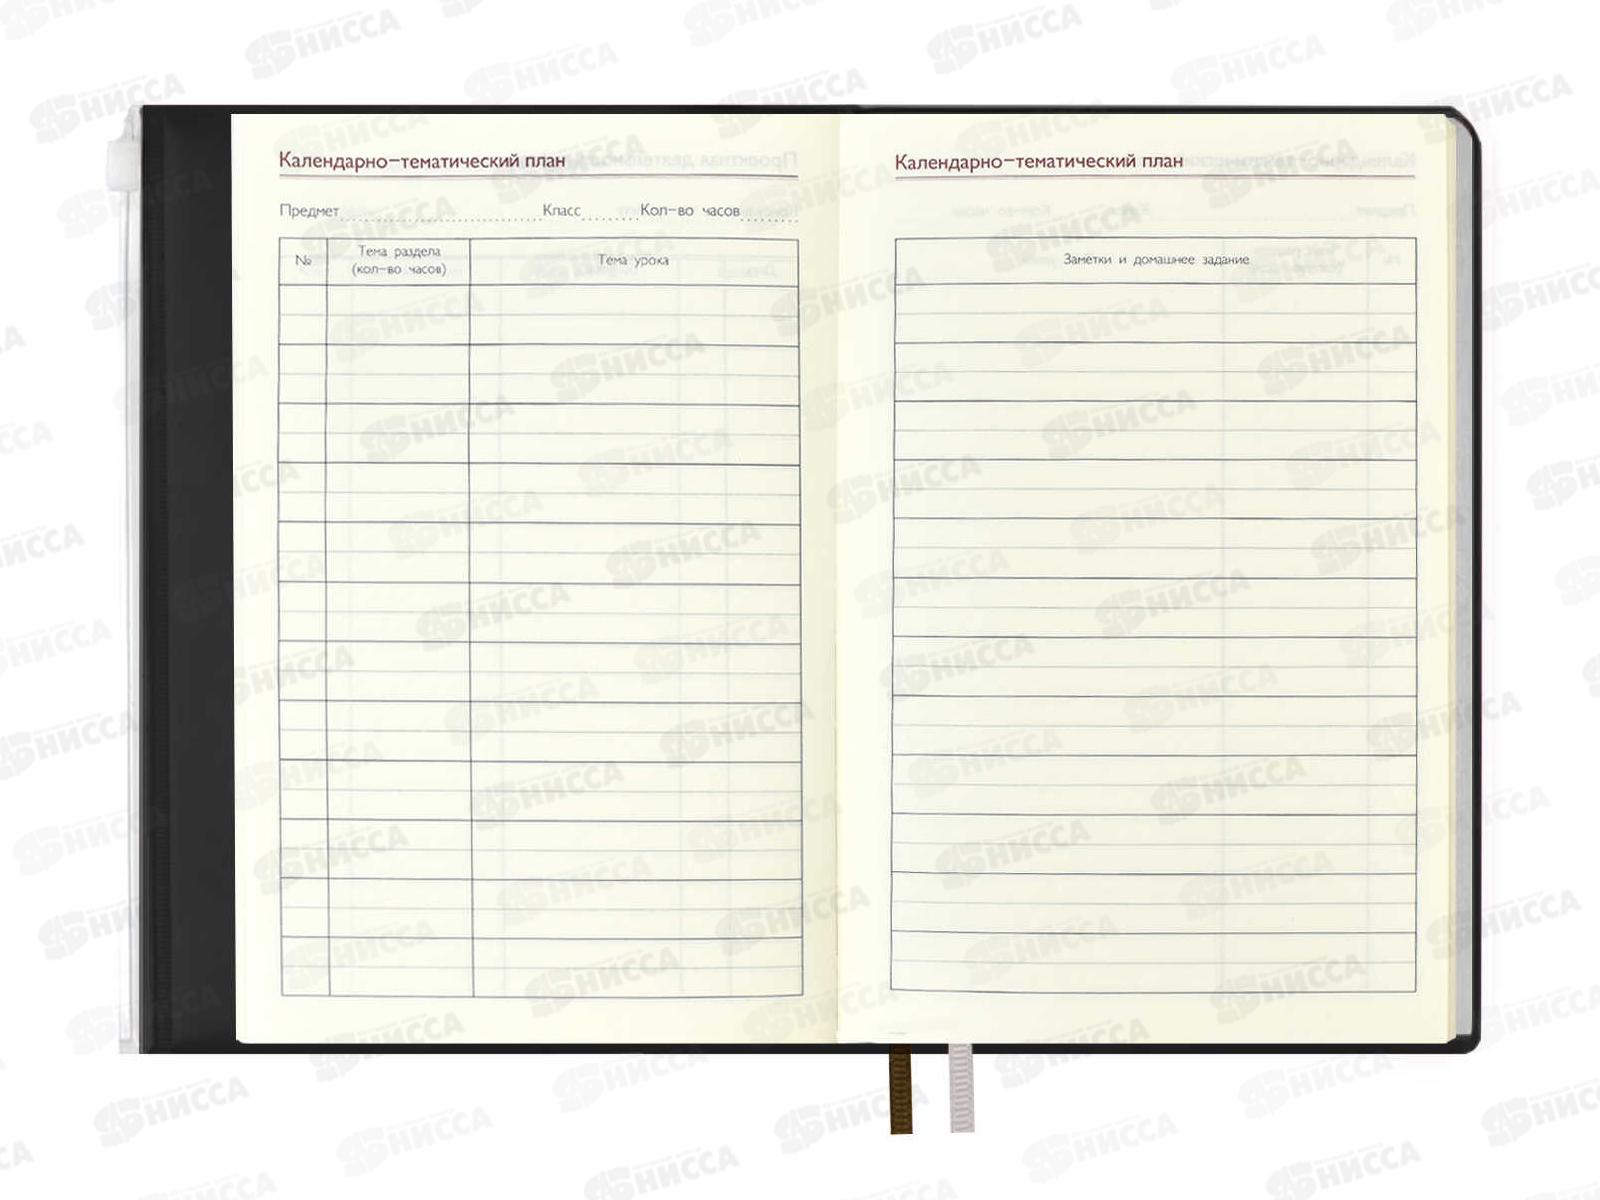 Календарно-тематический план
Предмет Класс Кол-во часов
№ Тема раздела (кол-во часов) Тема урока
Календарно-тематический план
Заметки и домашнее задание
НИССА